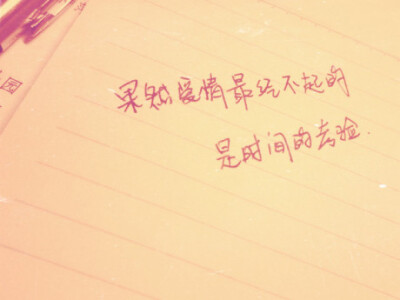 果然爱情最经不起的
是时间的考验.